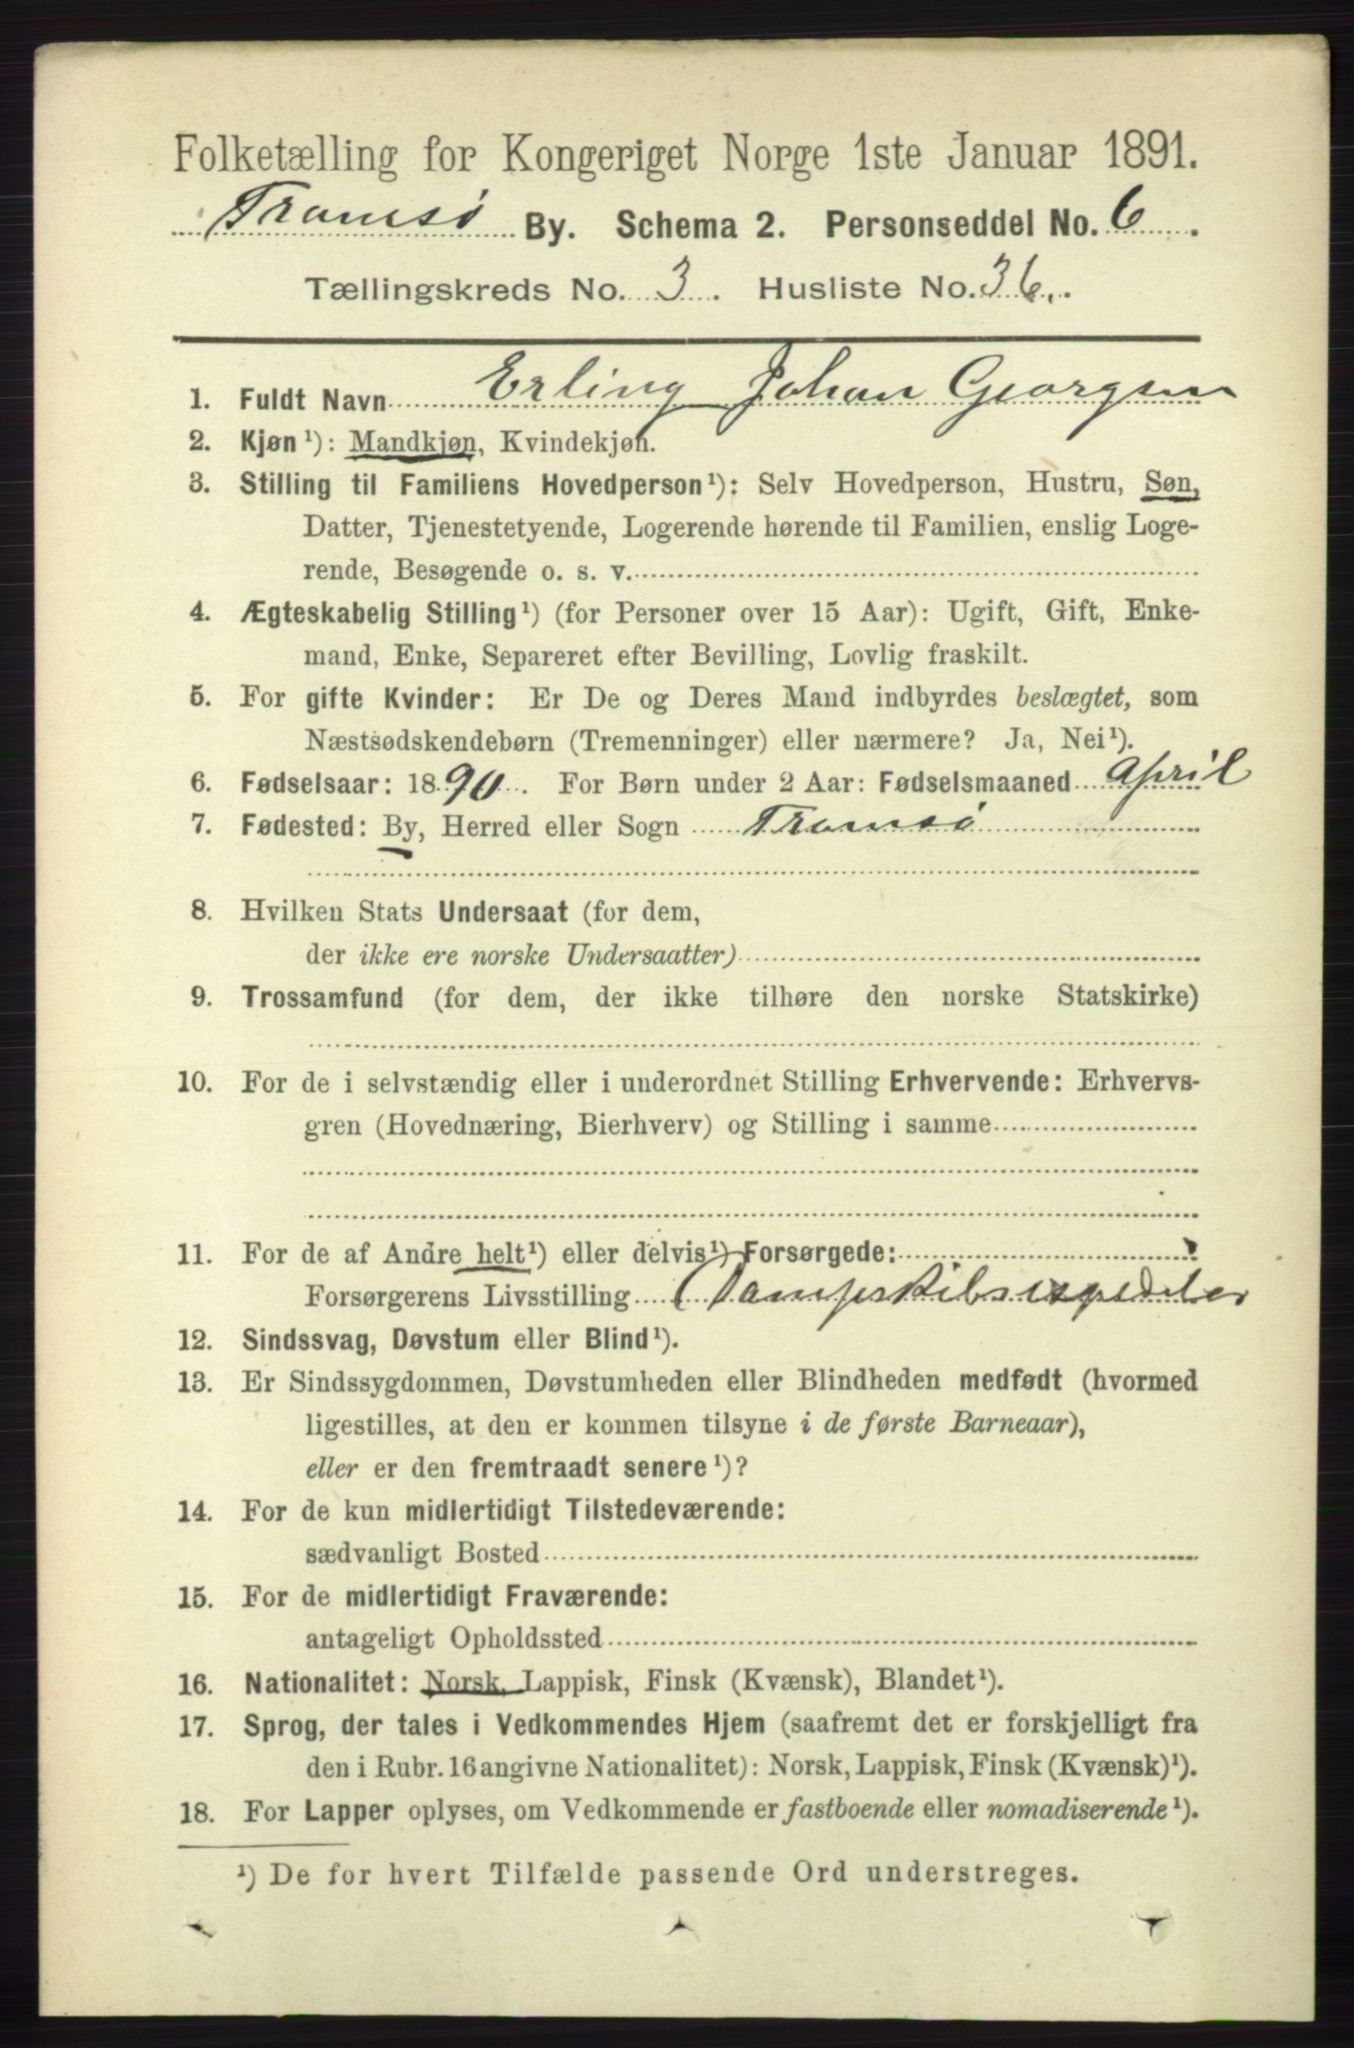 Folketælling for Kongeriget Norge 1ste Januar 1891.
Tromsø By. Schema 2. Personseddel No. 6.
Tællingskreds No. 3. Husliste No. 36.
1. Fuldt Navn Erling Johan Georgsen
2. Kjøn¹): Mandkjøn, Kvindekjøn.
3. Stilling til Familiens Hovedperson¹): Selv Hovedperson, Hustru, Søn,
Datter, Tjenestetyende, Logerende hørende til Familien, enslig Loge-
rende, Besøgende o. s. v.
4. Ægteskabelig Stilling¹) (for Personer over 15 Aar): Ugift, Gift, Enke-
mand, Enke, Separeret efter Bevilling, Lovlig fraskilt.
5. For gifte Kvinder: Er De og Deres Mand indbyrdes beslægtet, som
Næstsødskendebørn (Tremenninger) eller nærmere? Ja, Nei¹).
6. Fødselsaar: 1890. For Børn under 2 Aar: Fødselsmaaned April
7. Fødested: By, Herred eller Sogn Tromsø
8. Hvilken Stats Undersaat (for dem,
der ikke ere norske Undersaatter)
9. Trossamfund (for dem, der ikke tilhøre den norske Statskirke)
10. For de i selvstændig eller i underordnet Stilling Erhvervende: Erhvervs-
gren (Hovednæring, Bierhverv) og Stilling i samme
11. For de af Andre helt¹) eller delvis¹) Forsørgede:
Forsørgerens Livsstilling Dampskibsexpeditør
12. Sindssvag, Døvstum eller Blind¹).
13. Er Sindssygdommen, Døvstumheden eller Blindheden medfødt (hvormed
ligestilles, at den er kommen tilsyne i de første Barneaar),
eller er den fremtraadt senere¹)?
14. For de kun midlertidigt Tilstedeværende:
sædvanligt Bosted
15. For de midlertidigt Fraværende:
antageligt Opholdssted
16. Nationalitet: Norsk, Lappisk, Finsk (Kvænsk), Blandet¹).
17. Sprog, der tales i Vedkommendes Hjem (saafremt det er forskjelligt fra
den i Rubr. 16 angivne Nationalitet): Norsk, Lappisk, Finsk (Kvænsk)¹).
18. For Lapper oplyses, om Vedkommende er fastboende eller nomadiserende¹).
¹) De for hvert Tilfælde passende Ord understreges.